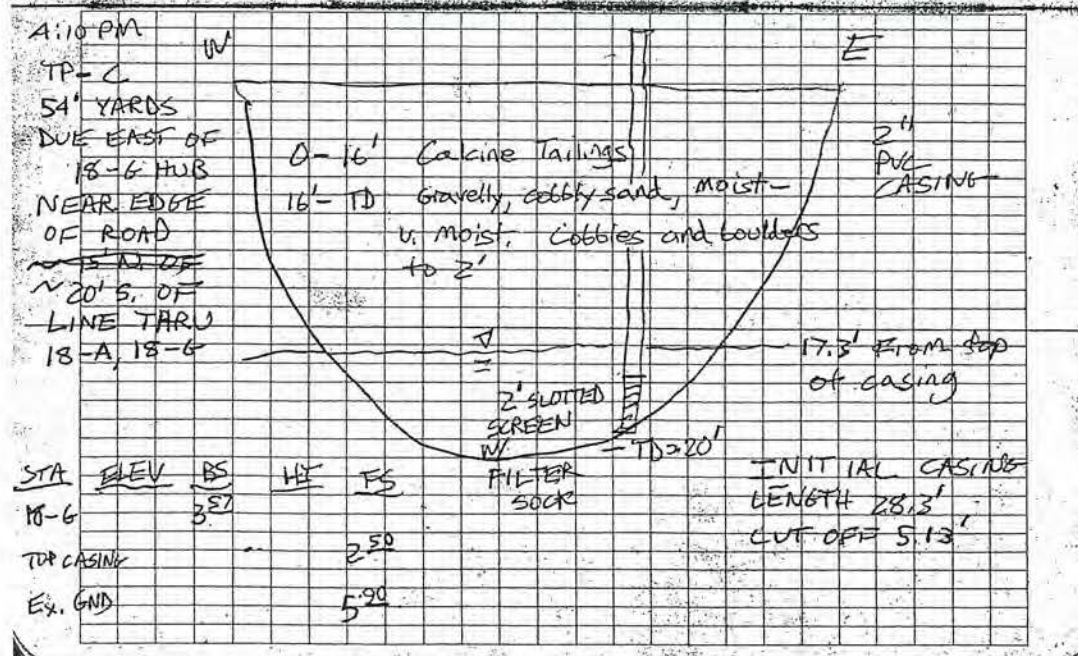 4:10 PM
W
E
TP-C
54' YARDS
DUE EAST OF
18-G HUB
NEAR EDGE
OF ROAD
~ 15' N. OF
~ 20' S. OF
LINE THRU
18-A, 18-G
0-16' Calcine Tailings
16'- TD Gravelly, cobbly sand, moist-
v. moist. Cobbles and boulders
to 2'
2"
PVC
CASING
17.3' From top
of casing
2' SLOTTED
SCREEN
W/
FILTER
SOCK
TD=20'
INITIAL CASING
LENGTH 28.3'
CUT OFF 5.13'
STA ELEV BS HI FS
18-G 3.57
TOP CASING 2.50
Ex. GND 5.90